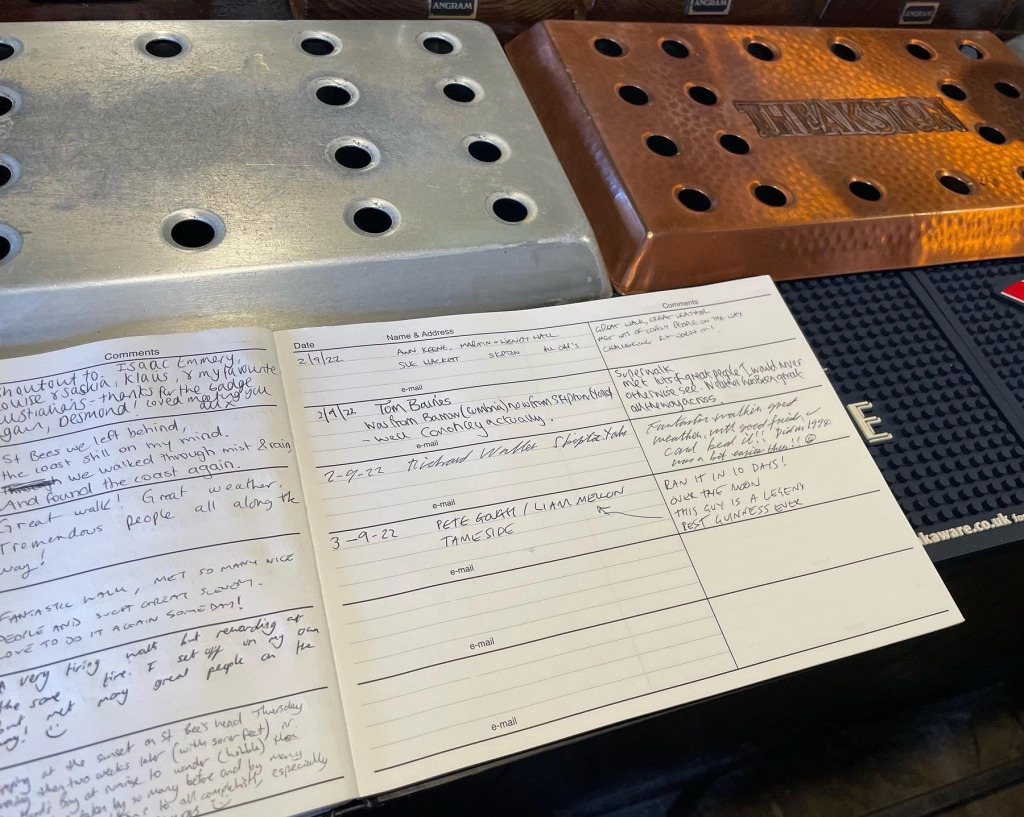 ANGRAM
ANGRAM
ANGRAM
THEAKSTON
E
kaware.co.uk for
Comments
Shoutout to Isaac Emmery,
Louise & Saskia, Klaus, & my favourite
Australians - thanks for the badge
again, Desmond! loved meeting you
all x
St Bees we left behind,
the coast still on my mind.
we walked through mist & rain
And found the coast again.
Great walk! Great weather.
Tremendous people all along the
way!
FANTASTIC WALK, MET SO MANY NICE
PEOPLE AND SUCH GREAT SCENERY.
LOVE TO DO IT AGAIN SOMEDAY!
A very tiring walk but rewarding at
the same time. I set off on my own
but met many great people on the
way!
at the sunset on St Bee's head Thursday
then two weeks later (with sore feet) in
Bay at sunrise to wander (hobble) then
taken by so many before and by many
to all completists, especially
Date
Name & Address
Comments
2/9/22
ANN KEENE, MARTIN + WENDY HALL
SUE HACKET SKIPTON
GREAT WALK, GREAT WEATHER
MET LOTS OF LOVELY PEOPLE ON THE WAY
CHALLENGING BUT WORTH IT!
e-mail
2/9/22
Tom Baines
was from Barrow (Cumbria) now from Skipton (Yorks)
- well Cononley actually.
Super walk
met lots of great people I would never
otherwise see. Weather has been great
all the way across
e-mail
2-9-22
Richard Waller Skipton Yorks
Fantastic walking, great
weather, with good friends
card beat it!! Did in 1994
was a bit easier then!!
e-mail
3-9-22
PETE GOUGH / LIAM MELLON
TAMESIDE
RAN IT IN 10 DAYS!
OVER THE MOON
THIS GUY IS A LEGEND
BEST GUINNESS EVER
e-mail
e-mail
e-mail